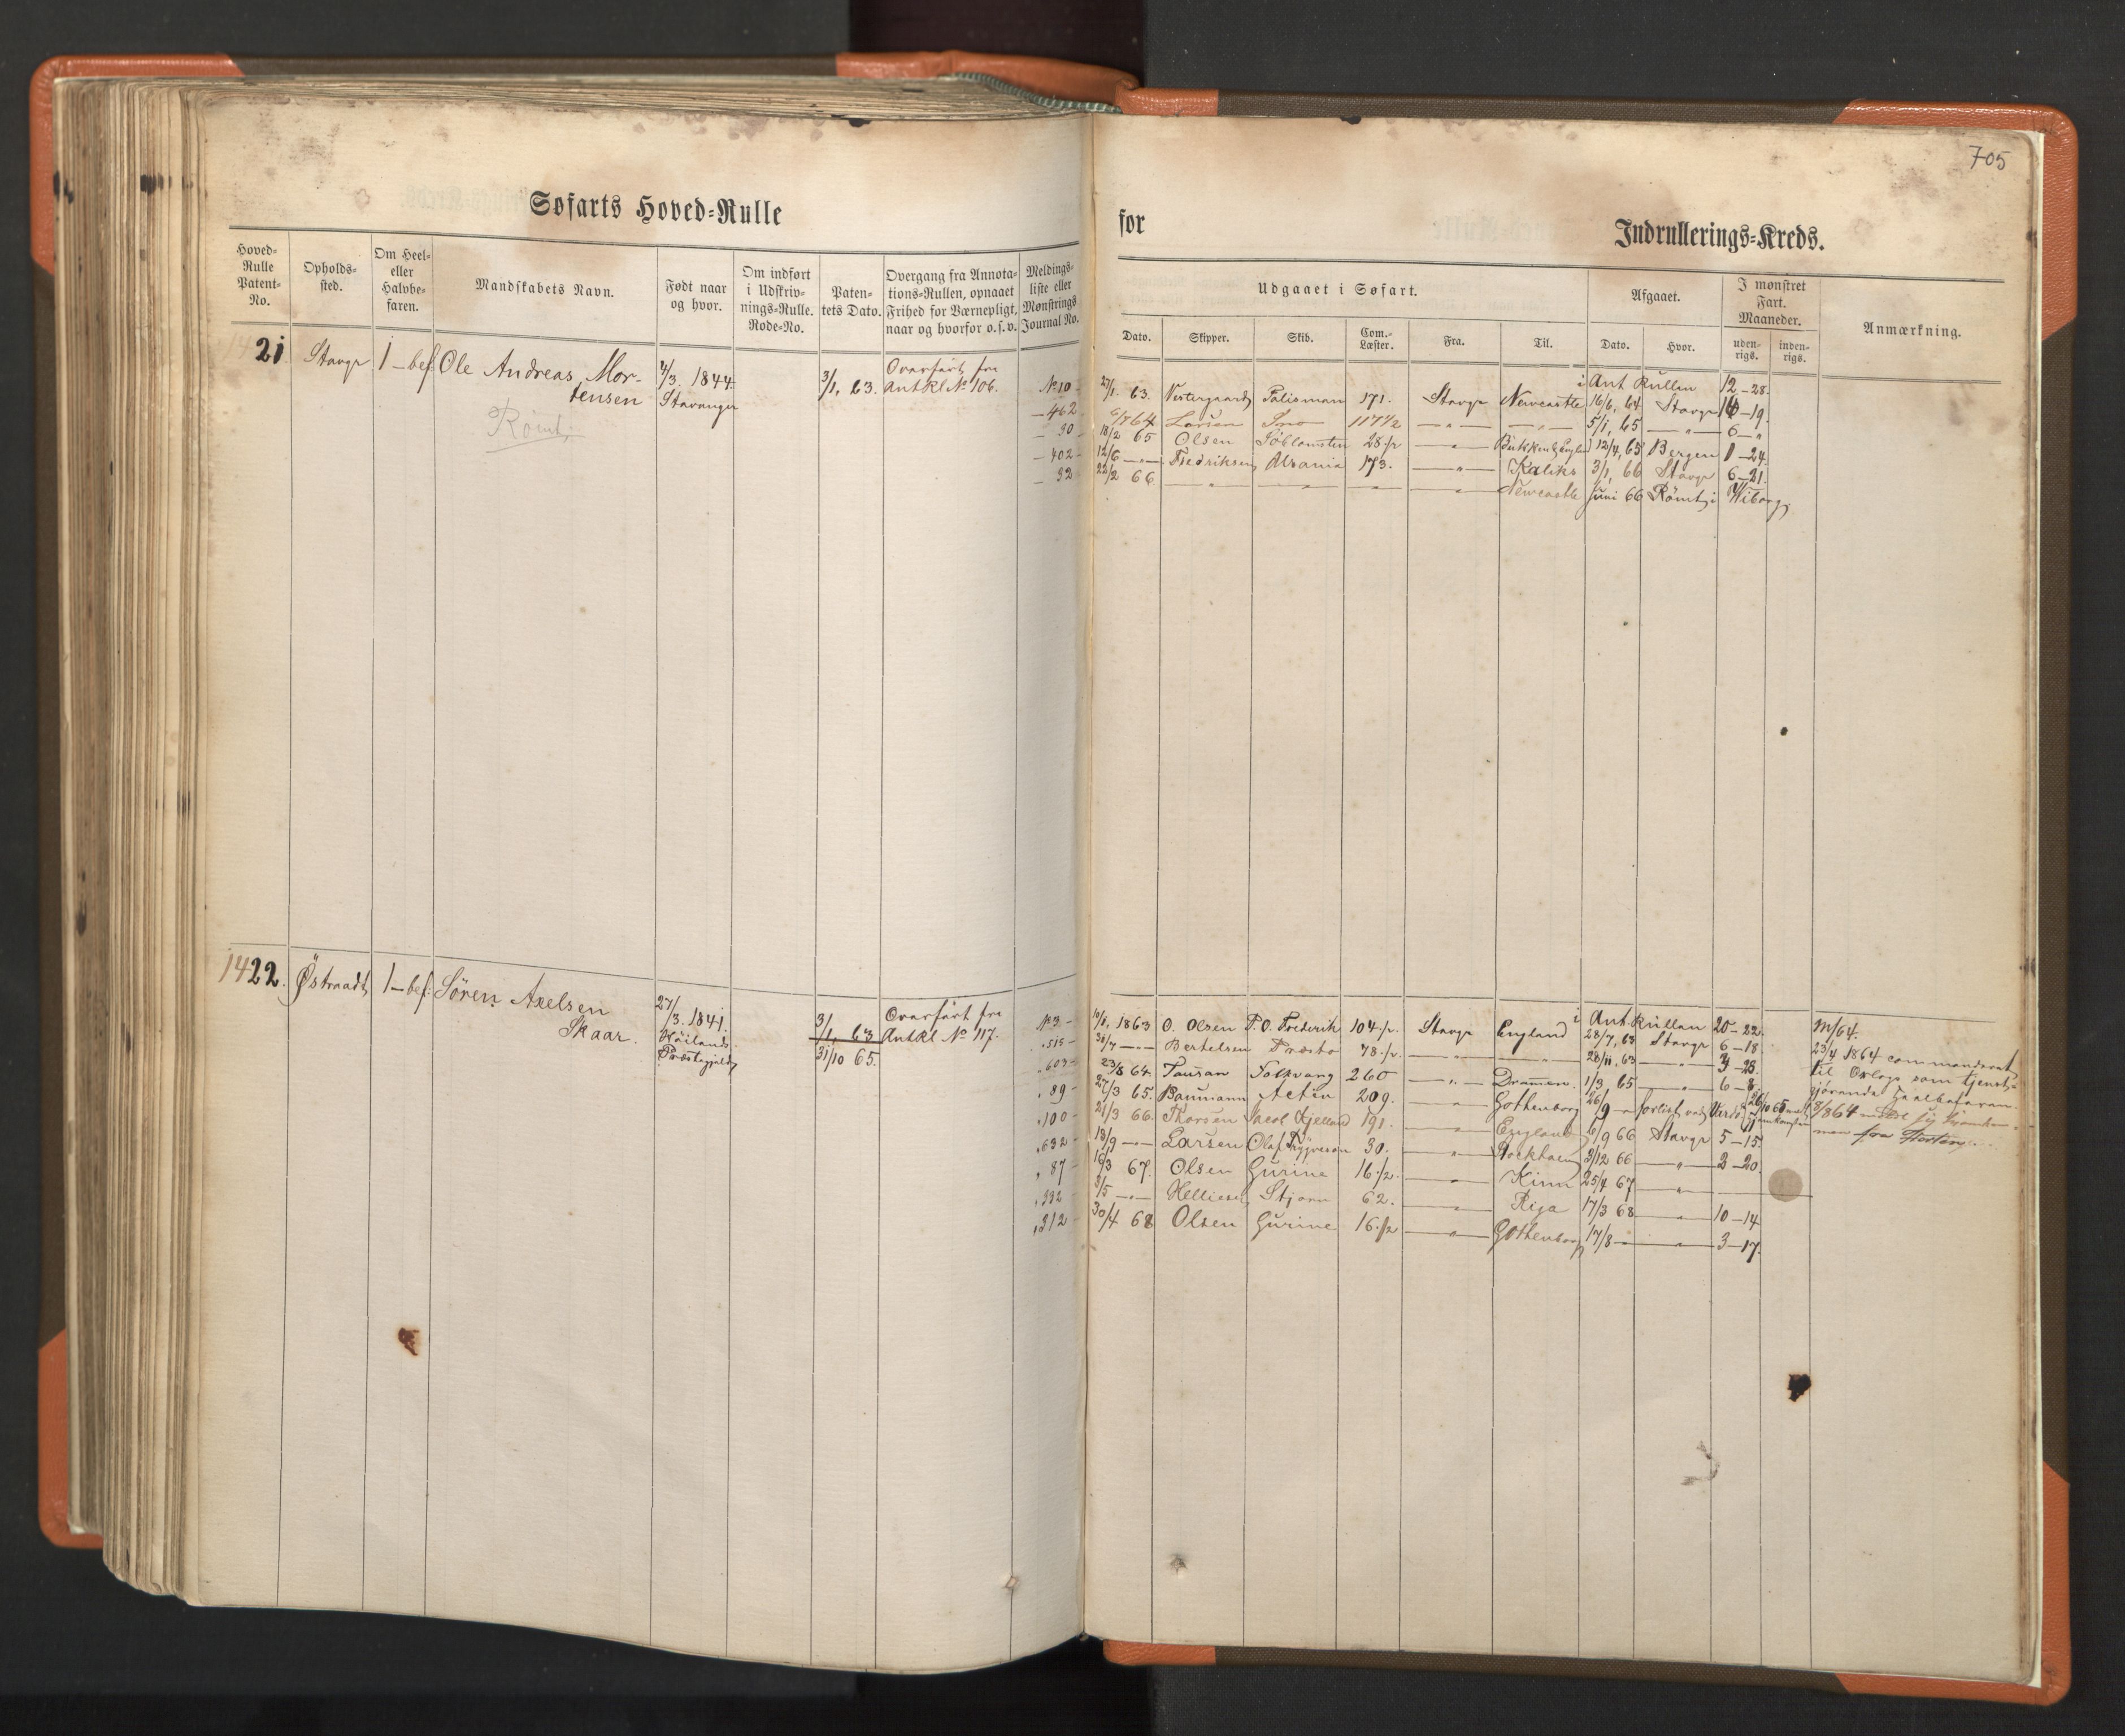 705
Søfarts Hoved=Rulle
for
Indrullerings=Kreds.
Hoved=
Rulle
Patent=
No.
Opholds=
sted.
Om Heel=
eller
Halvbe=
faren.
Mandskabets Navn.
Født naar
og hvor.
Om indført
i Udskriv=
nings=Rulle.
Rode=No.
Paten=
tets Dato.
Overgang fra Annota=
tions=Rullen, opnaaet
Frihed for Værnepligt,
naar og hvorfor o.s.v.
Meldings=
liste eller
Mønstrings
Journal No.
Udgaaet i Søfart.
Dato.
Skipper.
Skib.
Com.=
Læster.
Fra.
Til.
Afgaaet.
Dato.
Hvor.
I mønstret
Fart.
Maaneder.
uden=
rigs.
inden=
rigs.
Anmærkning.
1421. Stavgr 1-bef Ole Andreas Mor-
tensen
Römt,
4/3. 1844.
Stavanger
3/1, 63.
Overført fra
AntRl No 106.
i Ant Rullen 12-28.
No 10 - 27/1. 63. Vestergaard Talisman 171. Stavgr Newcastle 16/6, 64 Stavgr 16-19.
- 462 - 6/7 64 Larsen 117 1/2 -"- -"- 5/1, 65 -"- 6-"
- 30 - 18/2 65 Olsen 28 1/2 -"- 12/4, 65 Bergen 1-24.
- 402 - 12/6 -"- Fredriksen 173. -"- 3/1, 66 Stavgr 6-21.
- 32 - 22/2 66 -"- -"- -"- -"- Newcastle Juni 66 Römt i Wiborg
1422. Østraadt 1-bef. Sören Axelsen
Skaar.
27/3. 1841.
Höilands
Præstegjeld
3/1, 63
31/10 65.
Overført fra
AntRl No 117.
i Ant Rullen 20-22.
No 3 - 10/1, 1863 O. Olsen P. O. Frederik 104 1/2. Stavgr England 28/7, 63 Stavgr 6-18
" 515 - 31/7 -"- Bertelsen Præsto 78 1/2. -"- -"- 28/11, 63 -"- 3-28.
" 603 - 23/8 64. Tausan Folkvang 260 -"- Drammen. 1/3, 65 -"- 6-8.
" 89 - 27/3 65. Baumann Activ 209. -"- Gothenborg 26/9 -"- forlist ved
" 100 - 21/3 66. Thorsen Jacob Kjelland 191. -"- England 6/9 66 Stavgr 5-15.
" 632 - 18/9 -"- Larsen Olaf Trygveson 30. -"- Stockholm 3/12 66 -"- 2-20
" 87 - 16/3 67. Olsen Gurine 16 1/2. -"- Kinn 25/4 67 -"-
" 332 - 3/5 -"- Helliesen Stjern 62. -"- Riga 17/3 68 -"- 10-14
" 312 - 30/4 68 Olsen Gurine 16 1/2 -"- Gothenborg 17/8 -"- -"- 3-17.
M/64.
23/4 1864 commanderet
til Orlogs som tjenst-
gjörende
8/8 64